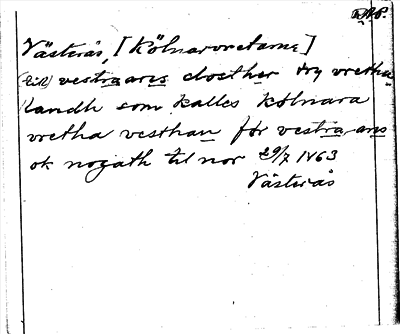 Västerås, [Kölnarvretarne]
(till) vestra aros closther try vretha
landh som kalles kolnara
vretha vesthan för vestra aros
ok nogath til nor 29/7 1463
Västerås